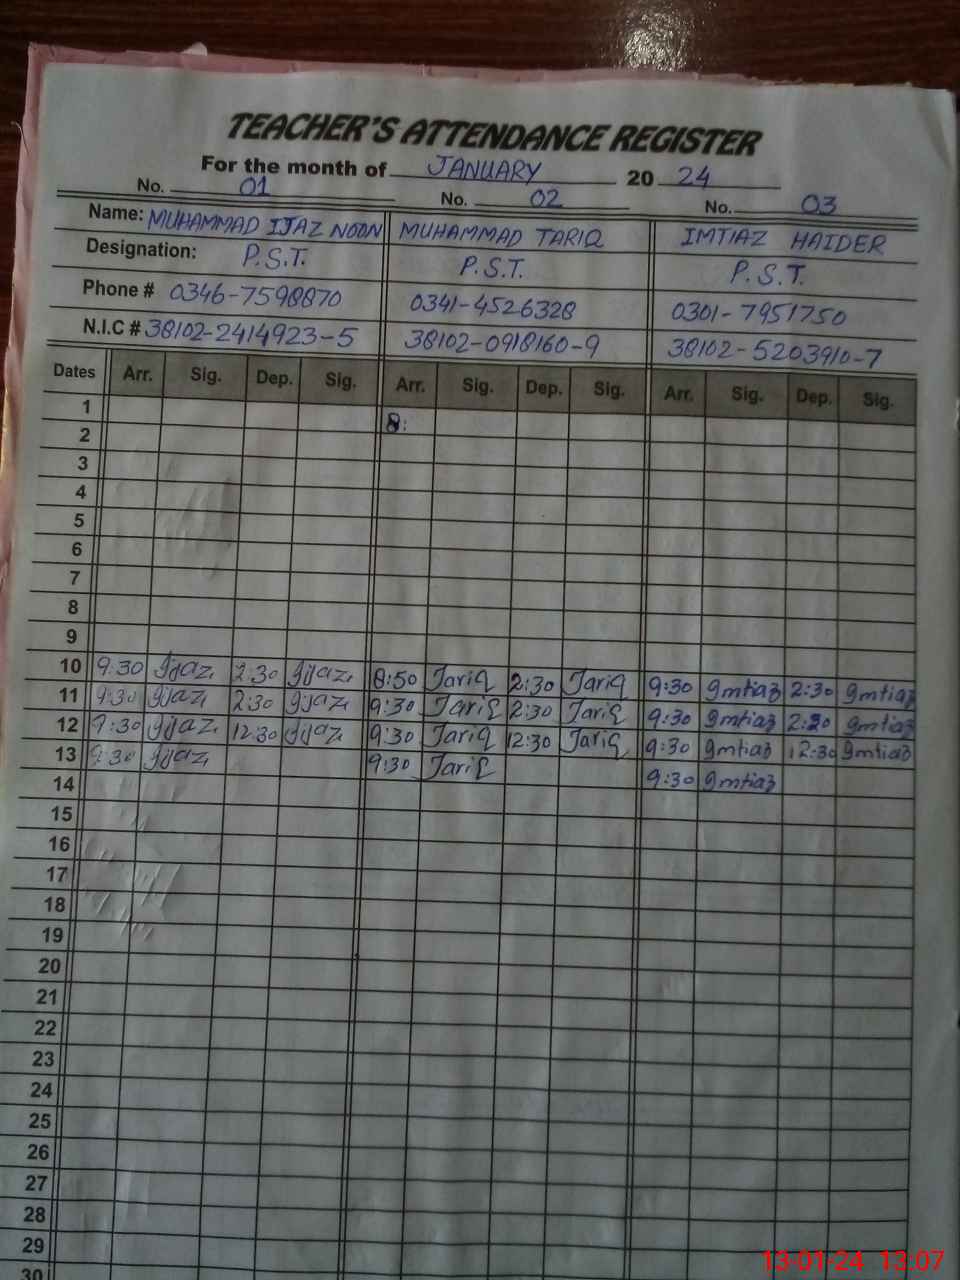 TEACHER'S ATTENDANCE REGISTER
For the month of JANUARY 20 24
No. 01 No. 02 No. 03
Name: MUHAMMAD IJAZ NOON MUHAMMAD TARIQ IMTIAZ HAIDER
Designation: P.S.T. P.S.T. P.S.T.
Phone # 0346-7598870 0341-4526328 0301-7951750
N.I.C # 38102-2414923-5 38102-0918160-9 38102-5203910-7
Dates Arr. Sig. Dep. Sig. Arr. Sig. Dep. Sig. Arr. Sig. Dep. Sig.
1 8:
2
3
4
5
6
7
8
9
10 9:30 Ijaz 2:30 Ijaz 8:50 Tariq 2:30 Tariq 9:30 Imtiaz 2:30 Imtiaz
11 9:30 Ijaz 2:30 Ijaz 9:30 Tariq 2:30 Tariq 9:30 Imtiaz 2:30 Imtiaz
12 9:30 Ijaz 12:30 Ijaz 9:30 Tariq 12:30 Tariq 9:30 Imtiaz 12:30 Imtiaz
13 9:30 Ijaz 9:30 Tariq 9:30 Imtiaz
14
15
16
17
18
19
20
21
22
23
24
25
26
27
28
29
30
13-01-24 13:07